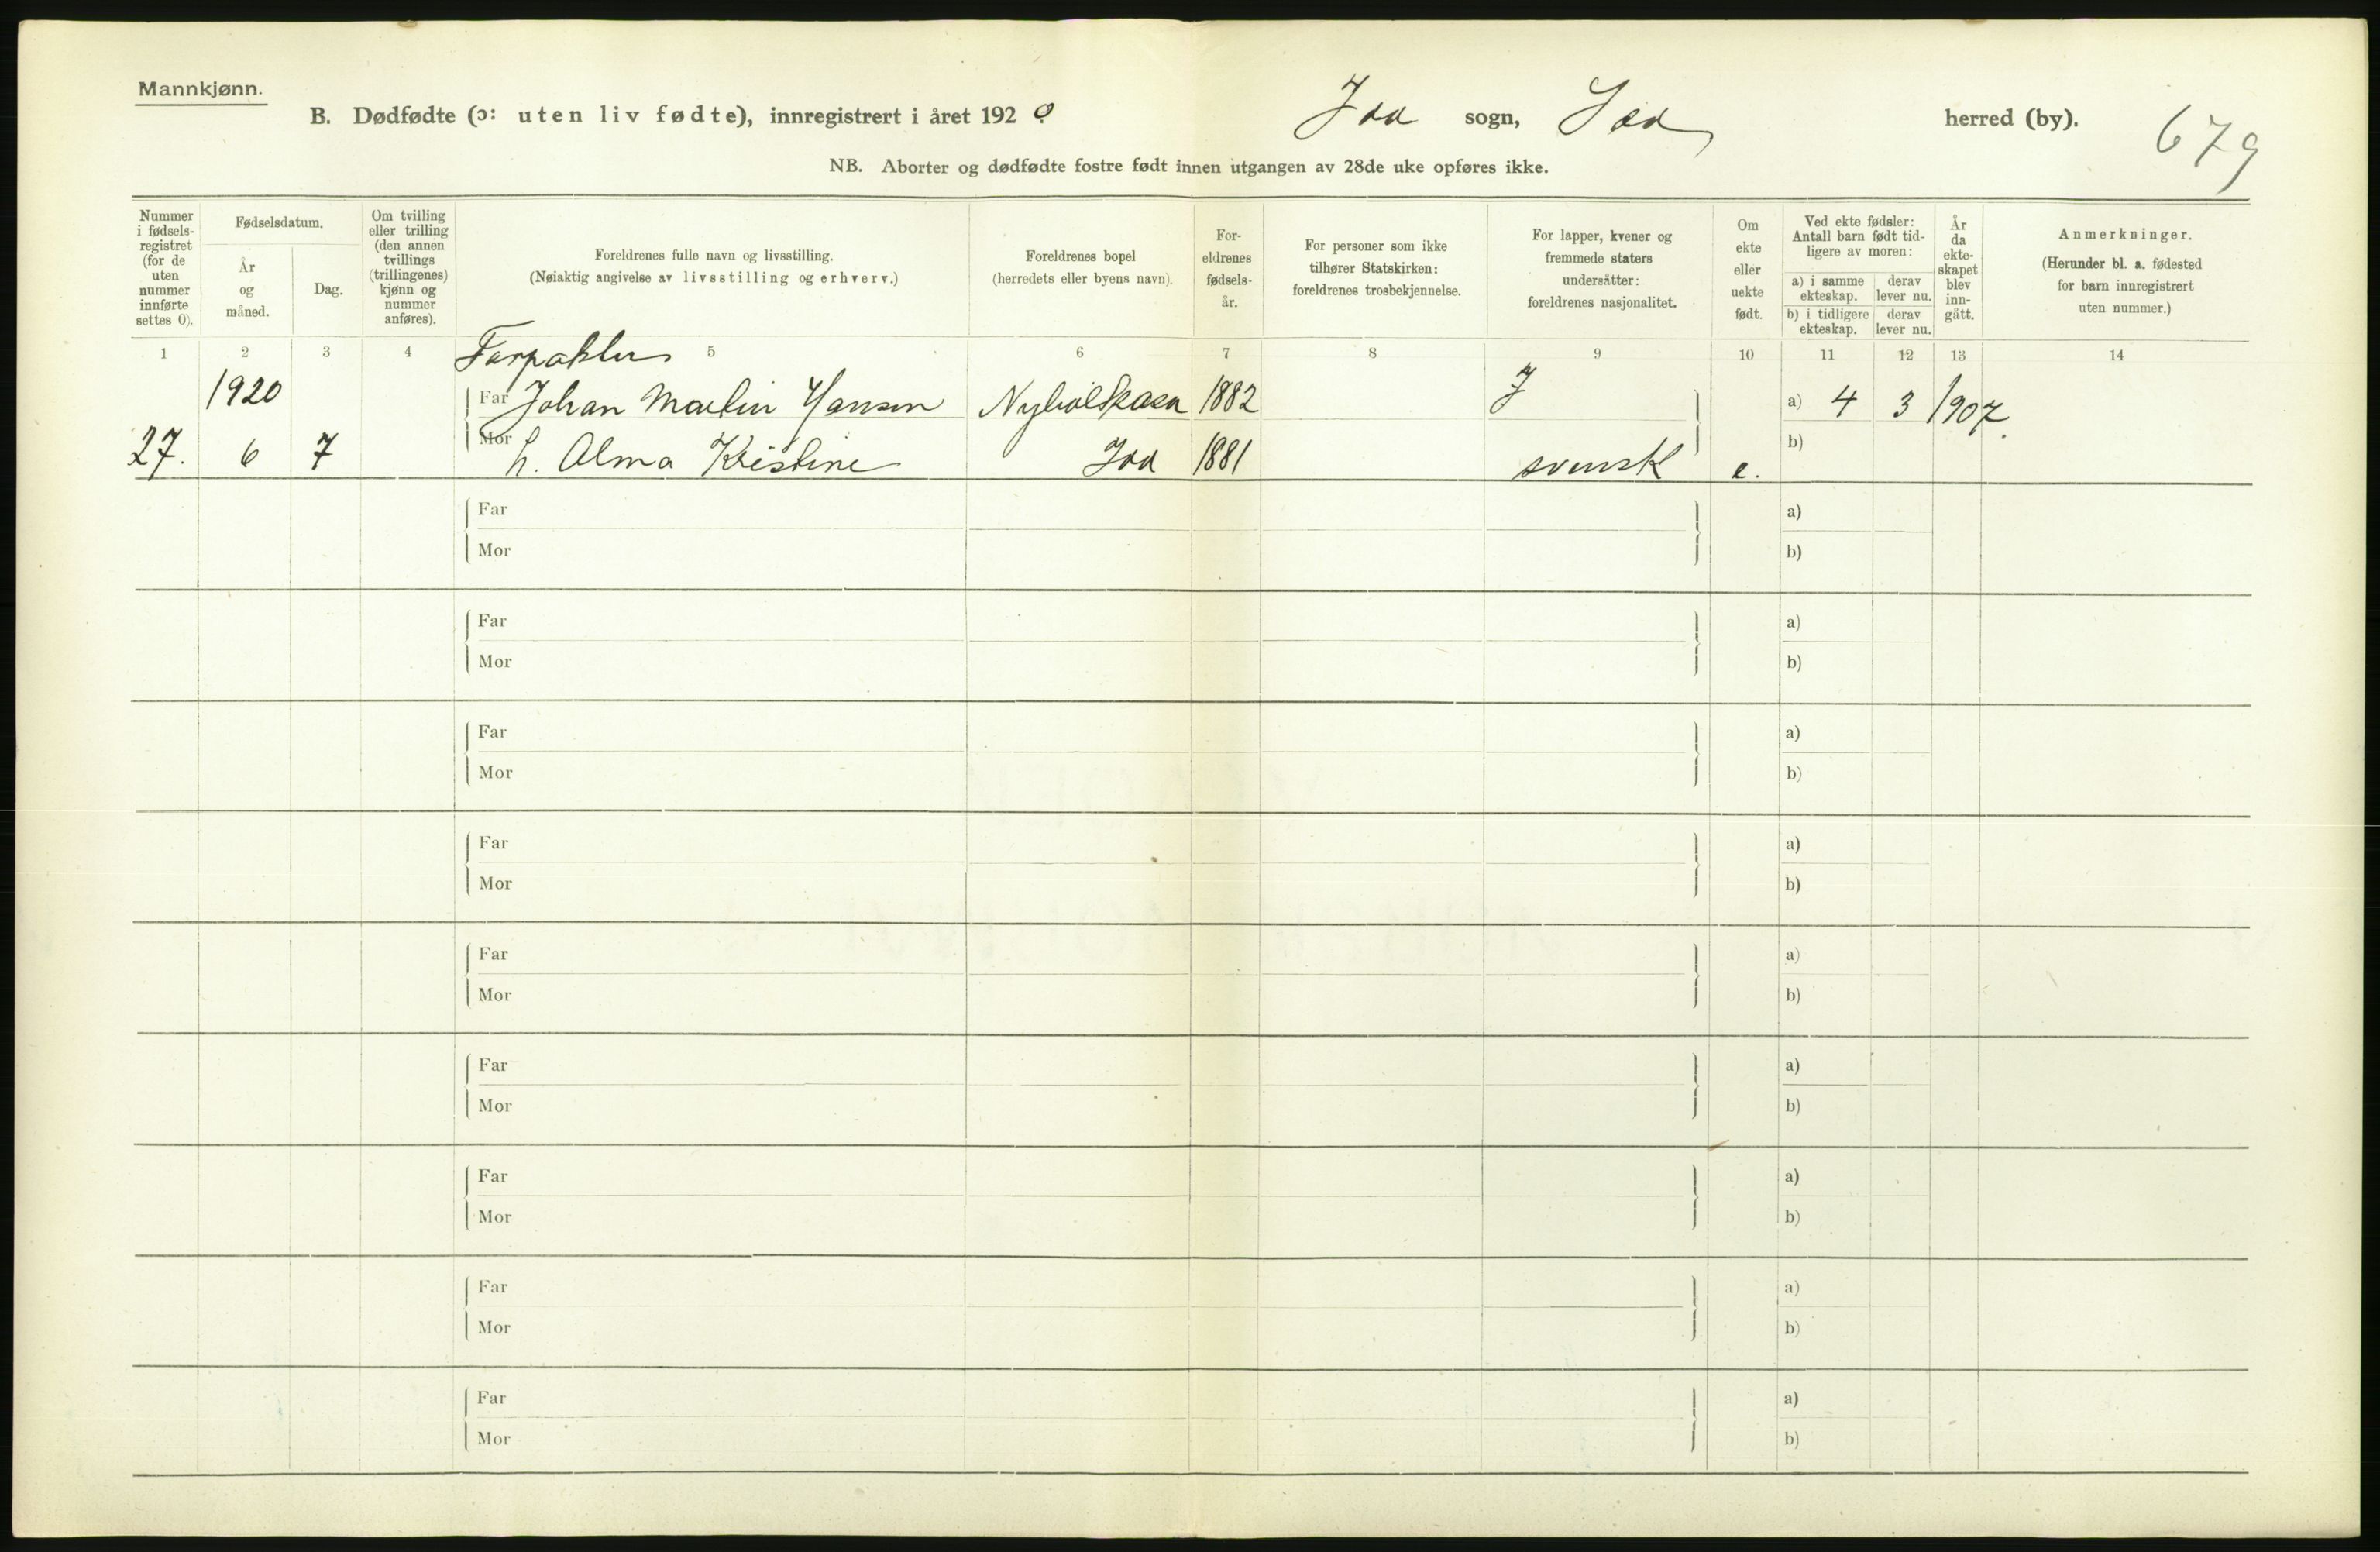 Mannkjønn.
B. Dødfødte (ɔ: uten liv fødte), innregistrert i året 1920 Idd sogn, Idd herred (by). 679
NB. Aborter og dødfødte fostre født innen utgangen av 28de uke opføres ikke.
Nummer i fødsels-registret (for de uten nummer innførte settes 0).
Fødselsdatum.
År og måned.
Dag.
Om tvilling eller trilling (den annen tvillings (trillingenes) kjønn og nummer anføres).
Foreldrenes fulle navn og livsstilling.
(Nøiaktig angivelse av livsstilling og erhverv.)
Foreldrenes bopel
(herredets eller byens navn).
For-eldrenes fødsels-år.
For personer som ikke tilhører Statskirken: foreldrenes trosbekjennelse.
For lapper, kvener og fremmede staters undersåtter: foreldrenes nasjonalitet.
Om ekte eller uekte født.
Ved ekte fødsler: Antall barn født tid-ligere av moren:
a) i samme ekteskap. derav lever nu.
b) i tidligere ekteskap. derav lever nu.
År da ekte-skapet blev inn-gått.
Anmerkninger.
(Herunder bl. a. fødested for barn innregistrert uten nummer.)
1 2 3 4 5 6 7 8 9 10 11 12 13 14
1920 Far Johan Martin Hansen 1882 a) 4 3 1907.
27. 6 7 Mor h. Alma Kristine Idd 1881 svensk e. b)
Far a)
Mor b)
Far a)
Mor b)
Far a)
Mor b)
Far a)
Mor b)
Far a)
Mor b)
Far a)
Mor b)
Far a)
Mor b)
Far a)
Mor b)
Far a)
Mor b)